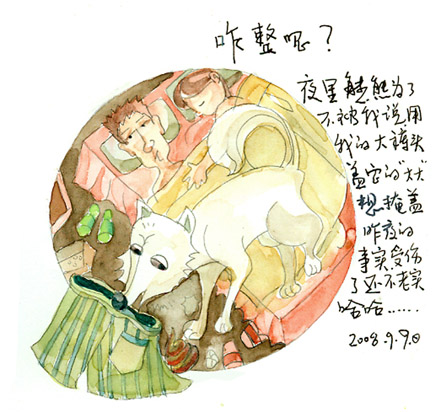 咋整呢？
夜里 熊为了
不被我说用
我的大裤头
盖它的"大"
想掩盖
昨夜的
事实受伤
了还不老实
哈哈……
2008.9.9.